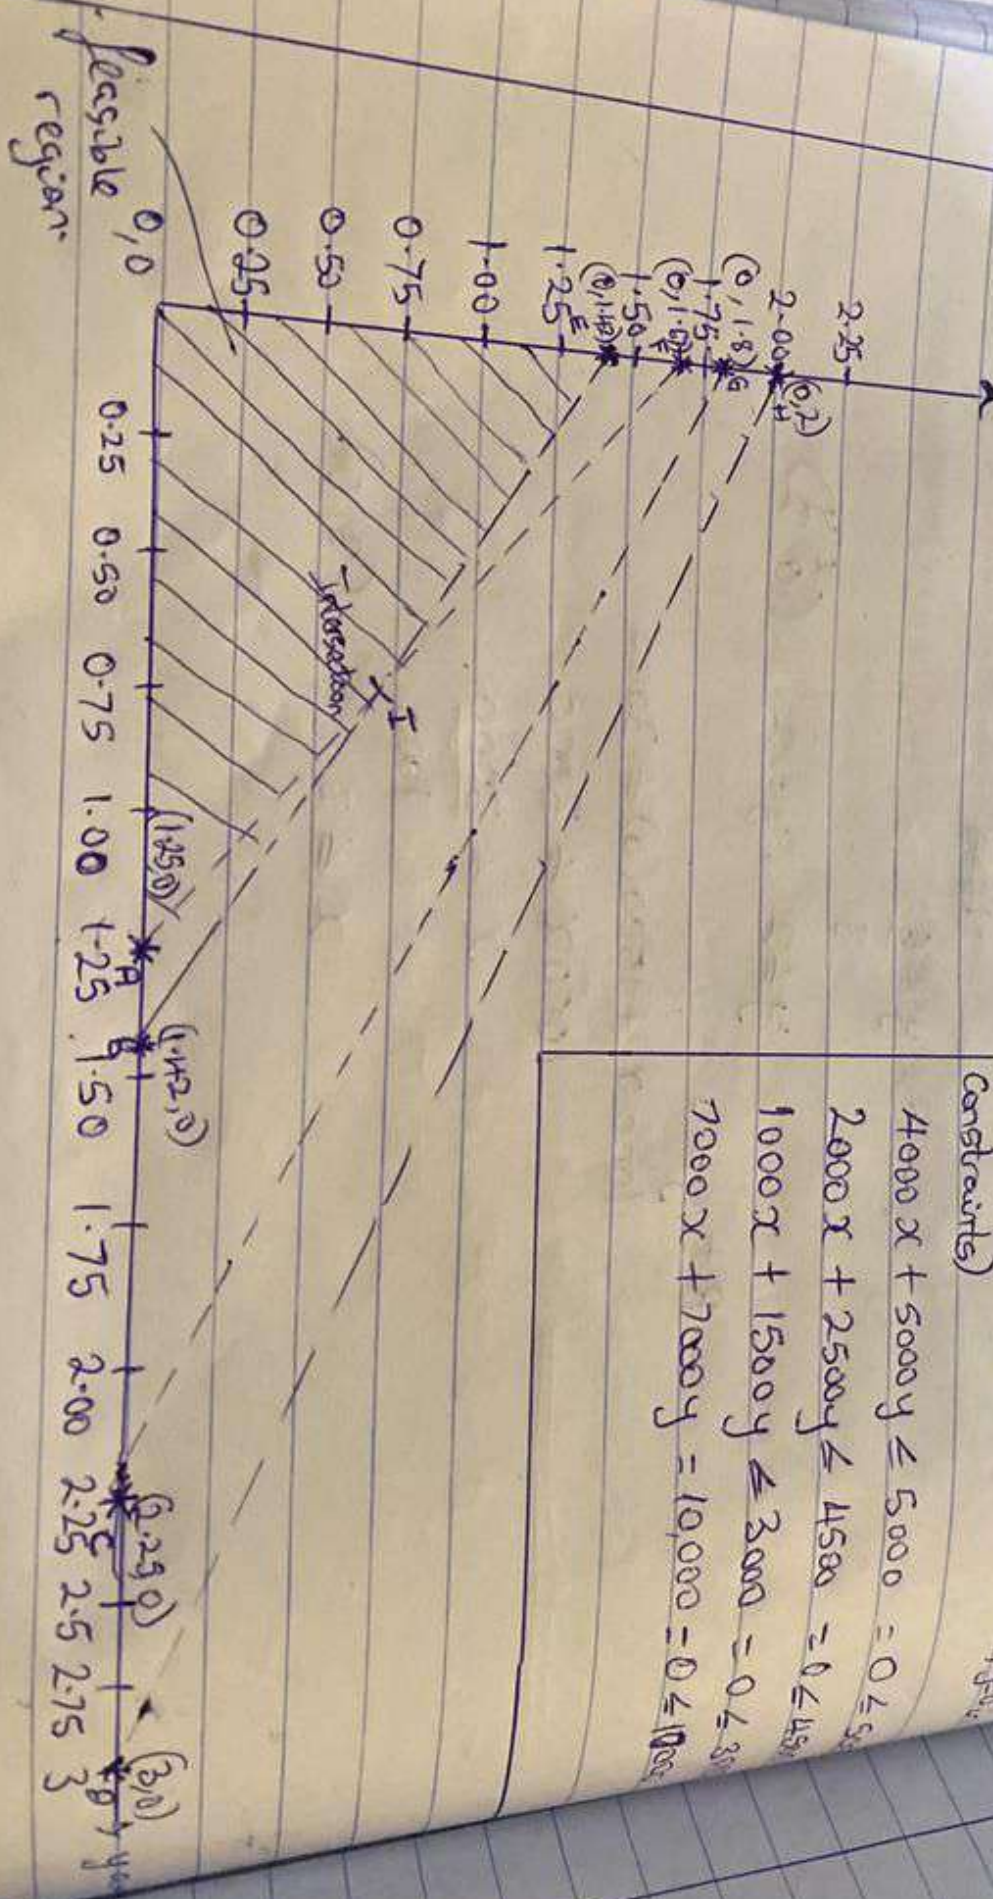 Constraints)
4000x + 5000y ≤ 5000 = 0 ≤
2000x + 2500y ≤ 4500 = 0 ≤ 450
1000x + 1500y ≤ 3000 = 0 ≤ 3
7000x + 7000y = 10,000 = 0 ≤
2.25
2.00 (0,2)
H
(0,1.8) G
1.75
(0,1.6) F
1.50
(0,1.42) E
1.25
1.00
0.75
0.50
0.25
0,0
feasible
region.
Intersection I
(1.25,0) (1.42,0) (2.25,0) (3,0)
A B C D
0.25 0.50 0.75 1.00 1.25 1.50 1.75 2.00 2.25 2.5 2.75 3